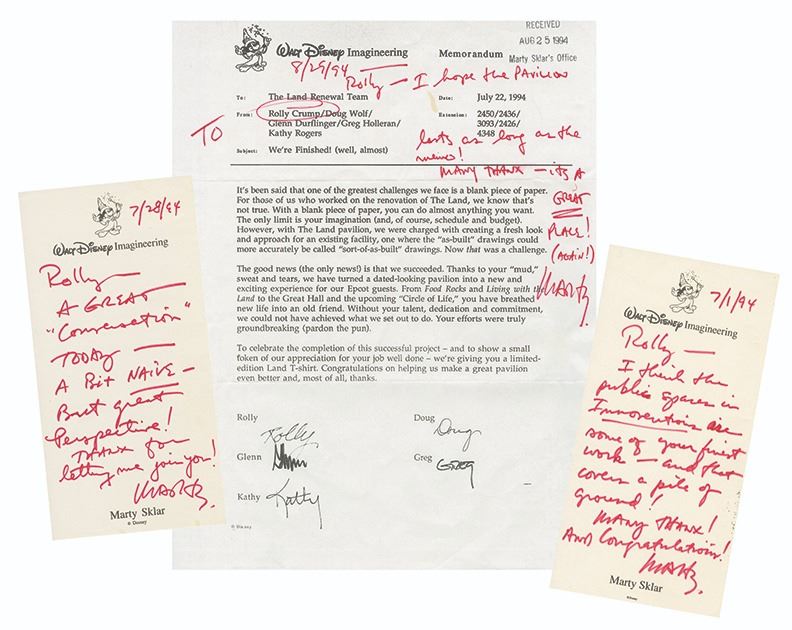 RECEIVED
AUG 25 1994
Marty Sklar's Office
WALT DISNEY Imagineering
Memorandum
8/29/94
Rolly — I hope the Pavilion
lasts as long as the
memo!
MANY THANX — its A
GREAT
PLACE!
(Again!)
MARTY.
TO
To: The Land Renewal Team
Date: July 22, 1994
From: Rolly Crump/Doug Wolf/
Glenn Durflinger/Greg Holleran/
Kathy Rogers
Extension: 2450/2436/
3093/2426/
4348
Subject: We're Finished! (well, almost)
It's been said that one of the greatest challenges we face is a blank piece of paper.
For those of us who worked on the renovation of The Land, we know that's
not true. With a blank piece of paper, you can do almost anything you want.
The only limit is your imagination (and, of course, schedule and budget).
However, with The Land pavilion, we were charged with creating a fresh look
and approach for an existing facility, one where the "as-built" drawings could
more accurately be called "sort-of-as-built" drawings. Now that was a challenge.
The good news (the only news!) is that we succeeded. Thanks to your "mud,"
sweat and tears, we have turned a dated-looking pavilion into a new and
exciting experience for our Epcot guests. From Food Rocks and Living with the
Land to the Great Hall and the upcoming "Circle of Life," you have breathed
new life into an old friend. Without your talent, dedication and commitment,
we could not have achieved what we set out to do. Your efforts were truly
groundbreaking (pardon the pun).
To celebrate the completion of this successful project – and to show a small
token of our appreciation for your job well done – we're giving you a limited-
edition Land T-shirt. Congratulations on helping us make a great pavilion
even better and, most of all, thanks.
Rolly
Rolly
Doug
Doug
Glenn
Glenn
Greg
GREG
Kathy
Kathy
© Disney
7/28/94
WALT DISNEY Imagineering
Rolly —
A GREAT
"Conversation"
TODAY —
A Bit NAIVE —
But great
Perspective!
THANX for
letting me join you!
MARTY.
Marty Sklar
© Disney
7/1/94
WALT DISNEY Imagineering
Rolly —
I think the
public spaces in
Innoventions are
some of your finest
work — and that
covers a pile of
ground!
MANY THANX!
And Congratulations!
MARTY.
Marty Sklar
© Disney